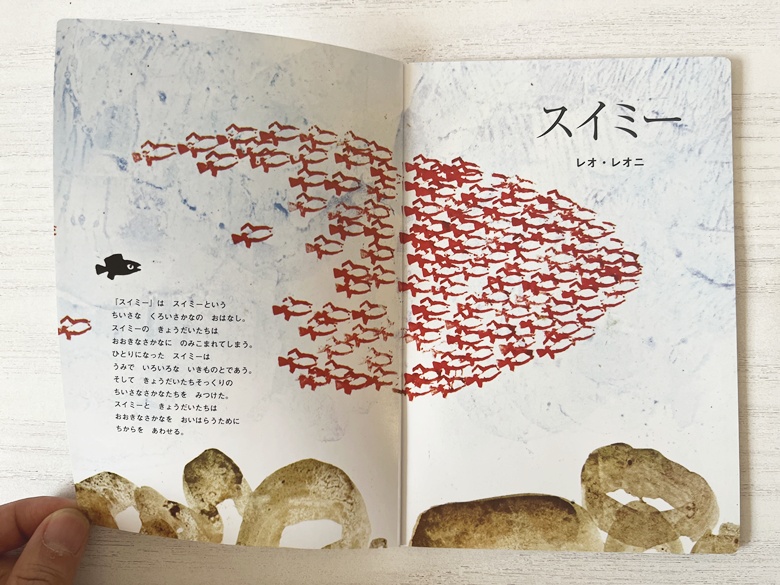 スイミー
レオ・レオニ
「スイミー」は　スイミーという
ちいさな　くろいさかなの　おはなし。
スイミーの　きょうだいたちは
おおきなさかなに　のみこまれてしまう。
ひとりになった　スイミーは
うみで　いろいろな　いきものとであう。
そして　きょうだいたちそっくりの
ちいさなさかなたちを　みつけた。
スイミーと　きょうだいたちは
おおきなさかなを　おいはらうために
ちからを　あわせる。